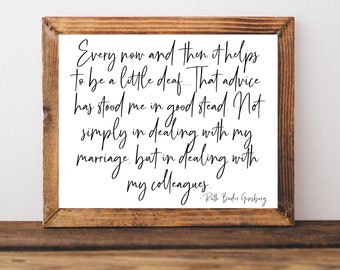 Every now and then it helps
to be a little deaf... That advice
has stood me in good stead. Not
simply in dealing with my
marriage, but in dealing with
my colleagues.
- Ruth Bader Ginsburg